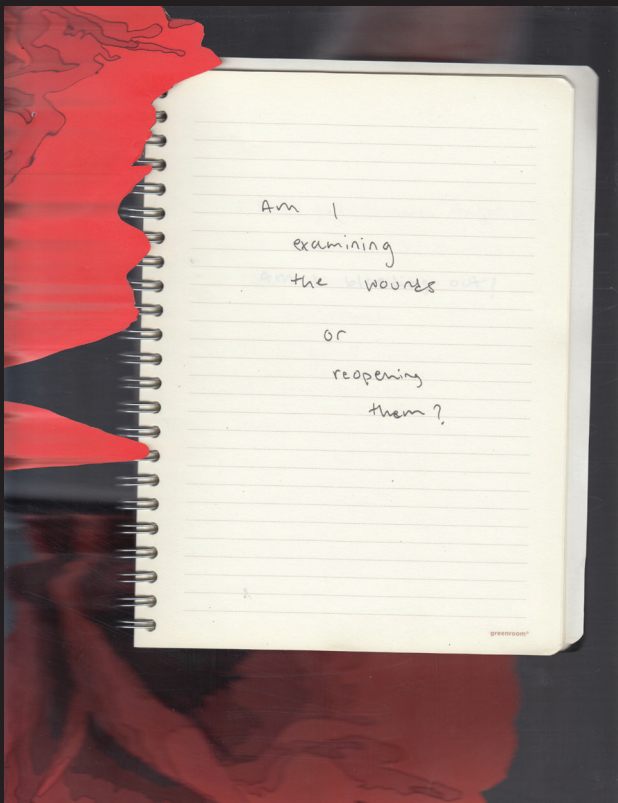 Am I
examining
the wounds
or
reopening
them?
greenroom®